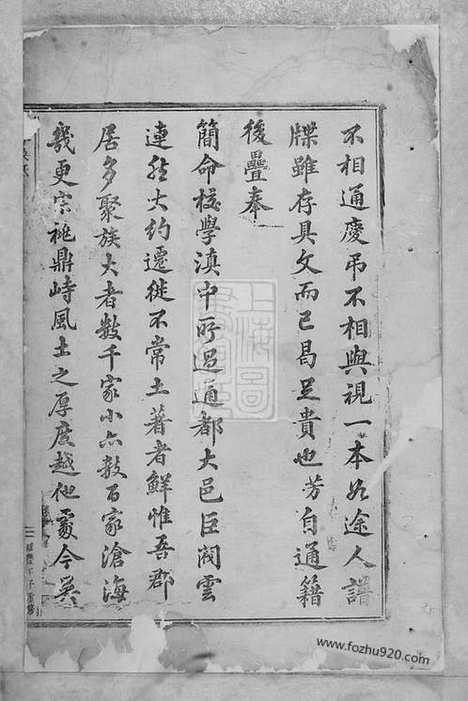 不相通慶弔不相與視一本如途人譜
牒雖存具文而已曷足貴也芳自通籍
後疊奉
簡命校學滇中所過通都大邑臣閥雲
連然大約遷徙不常土著者鮮惟吾郡
居多聚族大者數千家小亦數百家滄海
幾更宗祧鼎峙風土之厚度越他處今
上海圖
www.fozhu920.com